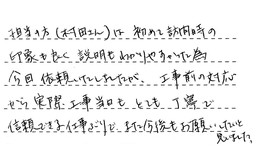 担当の方(村田さん)は、初めて訪問時の
印象も良く説明もわかりやすかった為
今回依頼いたしましたが、工事前の対応
から実際工事当日もとても丁寧で
信頼できる仕事ぶりで、また今後もお願いしたいと
思いました。